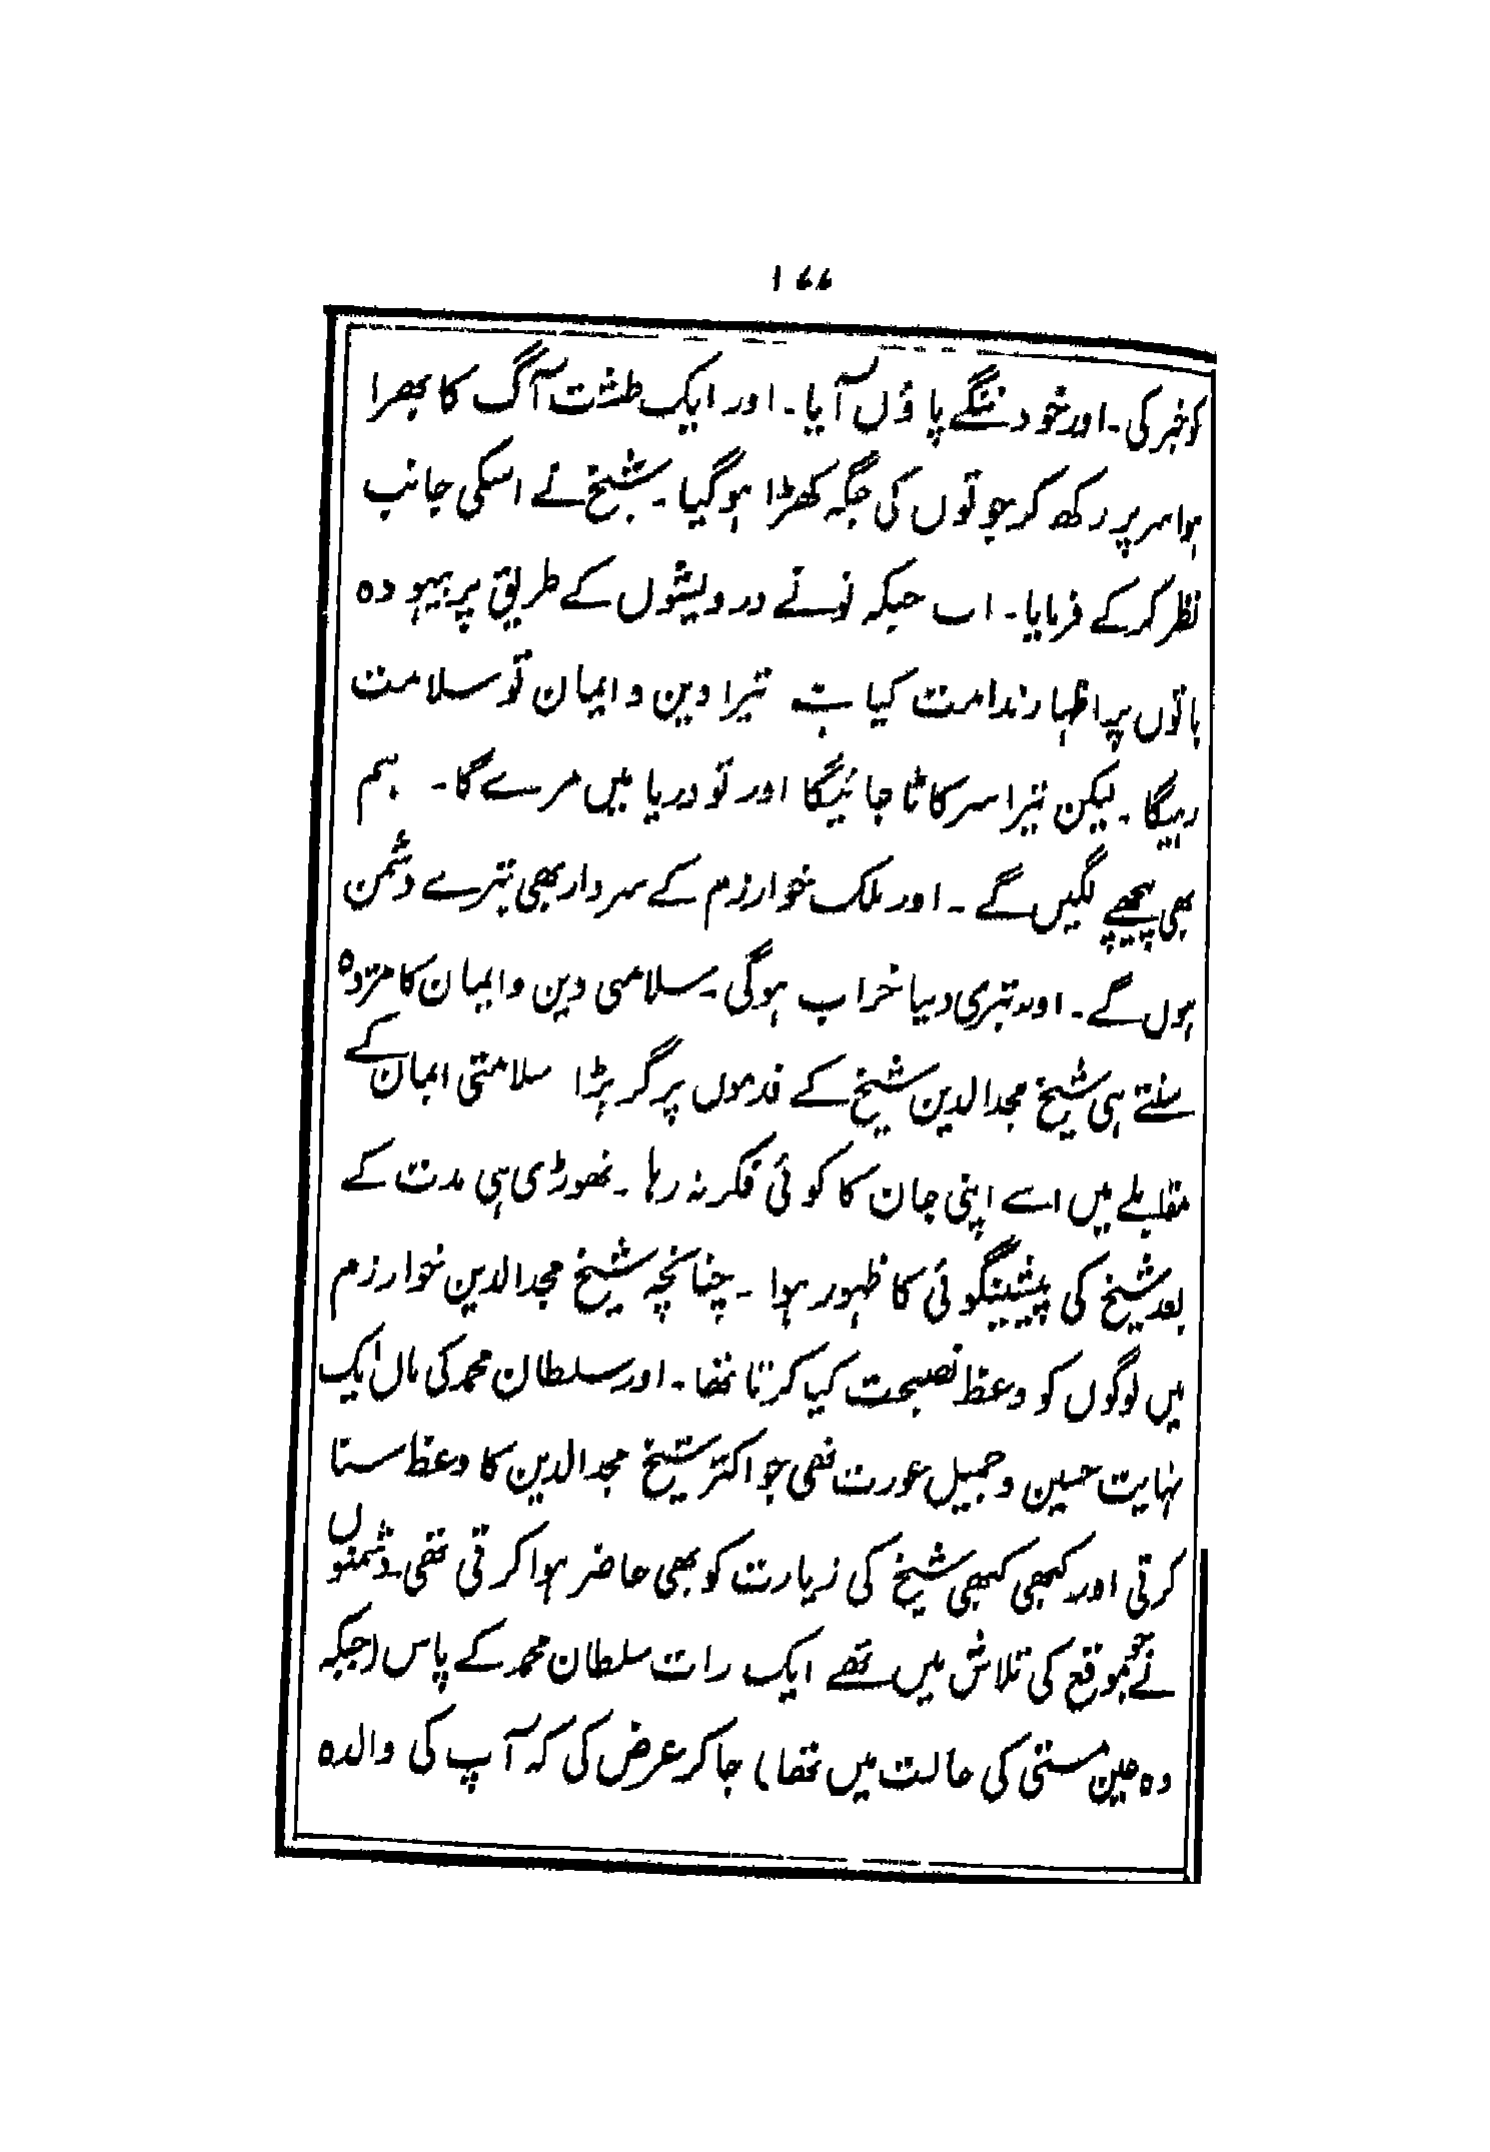 ۱۷۷
کو خبر کی۔ اور خود ننگے پاؤں آیا۔ اور ایک طشت آگ کا بھرا
ہوا سر پر رکھ کر جوتوں کی جگہ کھڑا ہوگیا۔ شیخ نے اسکی جانب
نظر کرکے فرمایا۔ اب جبکہ تونے درویشوں کے طریق پر بیہودہ
باتوں پر اظہار ندامت کیا ہے تیرا دین و ایمان تو سلامت
رہیگا۔ لیکن تیرا سر کاٹا جائیگا اور تو دریا میں مرے گا۔ ہم
بھی پیچھے لگیں گے۔ اور ملک خوارزم کے سردار بھی تیرے دشمن
ہوں گے۔ اور تیری دنیا خراب ہوگی۔ سلامتی دین و ایمان کا مژدہ
سنتے ہی شیخ مجدالدین شیخ کے قدموں پر گر پڑا سلامتی ایمان کے
مقابلے میں اسے اپنی جان کا کوئی فکر نہ رہا۔ تھوڑی ہی مدت کے
بعد شیخ کی پیشینگوئی کا ظہور ہوا۔ چنانچہ شیخ مجدالدین خوارزم
میں لوگوں کو وعظ نصیحت کیا کرتا تھا۔ اور سلطان محمد کی ماں ایک
نہایت حسین و جمیل عورت تھی جو اکثر شیخ مجدالدین کا وعظ سنا
کرتی اور کبھی کبھی شیخ کی زیارت کو بھی حاضر ہوا کرتی تھی۔ دشمنوں
نے جو موقع کی تلاش میں تھے ایک رات سلطان محمد کے پاس (جبکہ
وہ عین مستی کی حالت میں تھا) جا کر عرض کی کہ آپ کی والدہ